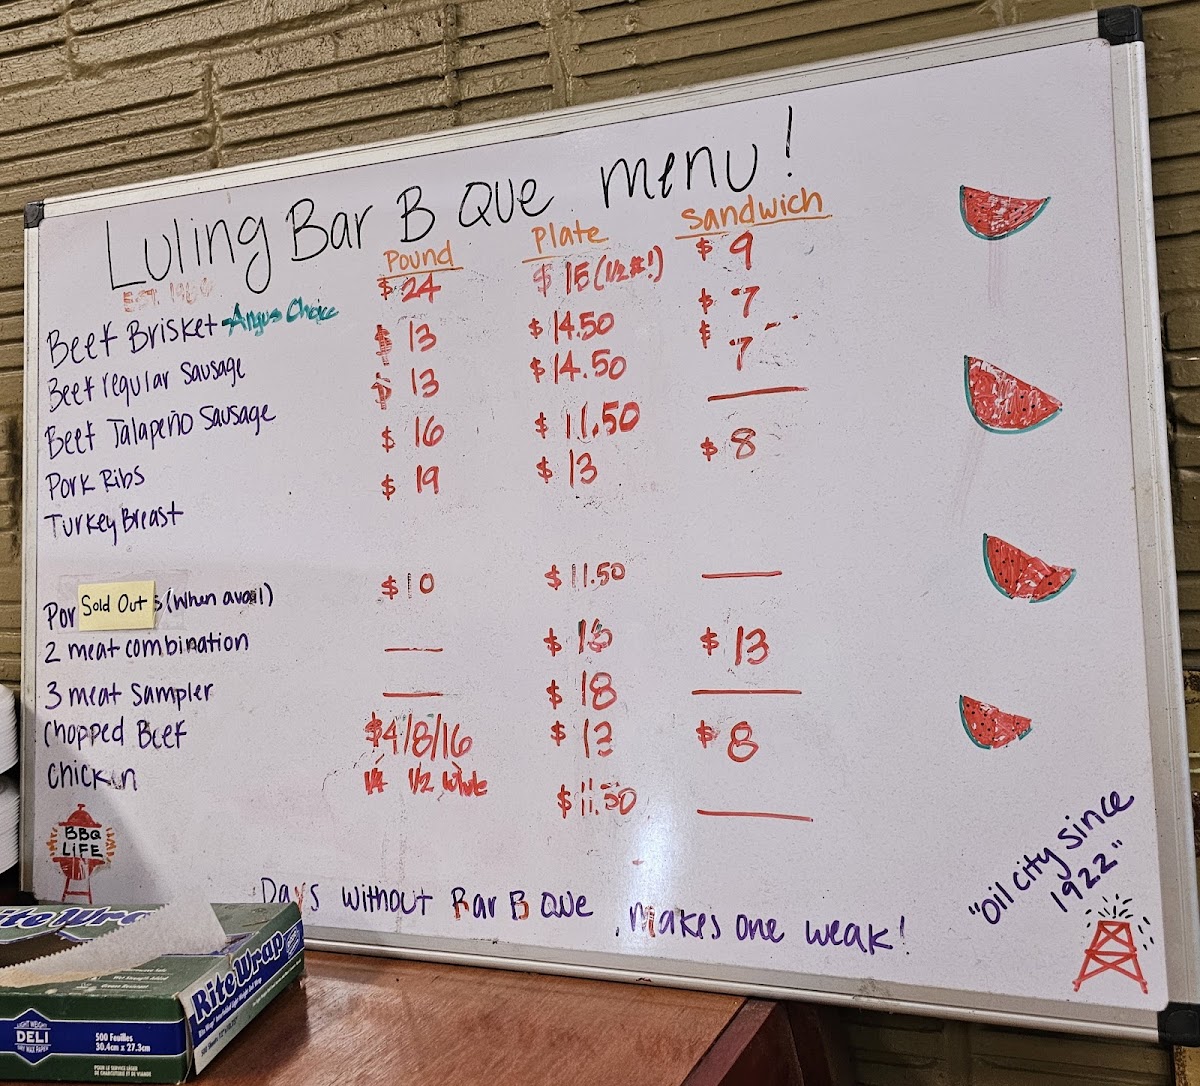 Luling Bar B Que menu!
Est. 1986
Pound Plate Sandwich
Beef Brisket-Angus Choice $24 $15 (1/2#!) $9
Beef regular Sausage $13 $14.50 $7
Beef Jalapeño Sausage $13 $14.50 $7
Pork Ribs $16 $11.50 —
Turkey Breast $19 $13 $8
Por Sold Out s (when avail) $10 $11.50 —
2 meat combination — $16 $13
3 meat Sampler — $18 —
Chopped Beef $4/8/16 $13 $8
1/4 1/2 whole
Chicken $11.50 —
BBQ
LiFE
Days without Bar B Que makes one weak!
"Oil city since
1922"
Rite Wrap
Rite Wrap
LIGHT WEIGHT
DELI
DRY WAX PAPER
500 Feuilles
30.4cm x 27.3cm